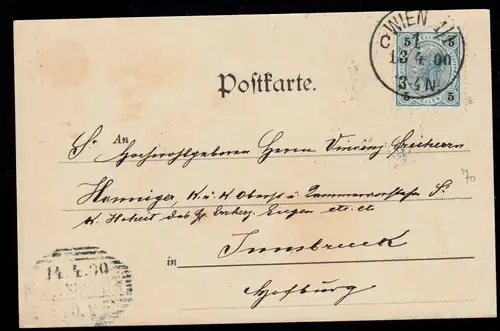 WIEN 1/1
C 1
13 4 00
3-4 N
5 5
5 5
Postkarte.
An
Sr Hochwohlgeboren Herrn Vincenz Freiherrn
Henniger, K. u. K. Oberst u. Kammervorsteher Sr.
K. Hoheit des Hr. Erzherz. Eugen etc. etc
in Innsbruck
Hofburg
70
14.4.00